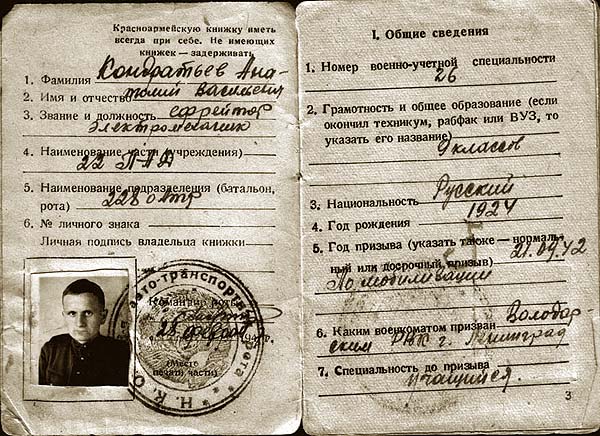 Красноармейскую книжку иметь
всегда при себе. Не имеющих
книжек — задерживать.
1. Фамилия Кондратьев Ана-
2. Имя и отчество толий Васильевич
3. Звание и должность ефрейтор
Электромеханик
4. Наименование части (учреждения)
22
5. Наименование подразделения (батальон,
рота) 228
6. № личного знака
Личная подпись владельца книжки
авто-транспорт
рота
Н. К. О.
Командир роты
28 февраля 194
(Место
печати части)
I. Общие сведения
1. Номер военно-учетной специальности
26
2. Грамотность и общее образование (если
окончил техникум, рабфак или ВУЗ, то
указать его название)
9 классов
3. Национальность Русский
4. Год рождения 1924
5. Год призыва (указать также — нормаль-
ный или досрочный призыв) 21.09.42
По мобилизации
6. Каким военкоматом призван Володар-
ским РВК г. Ленинград
7. Специальность до призыва
учащийся.
3